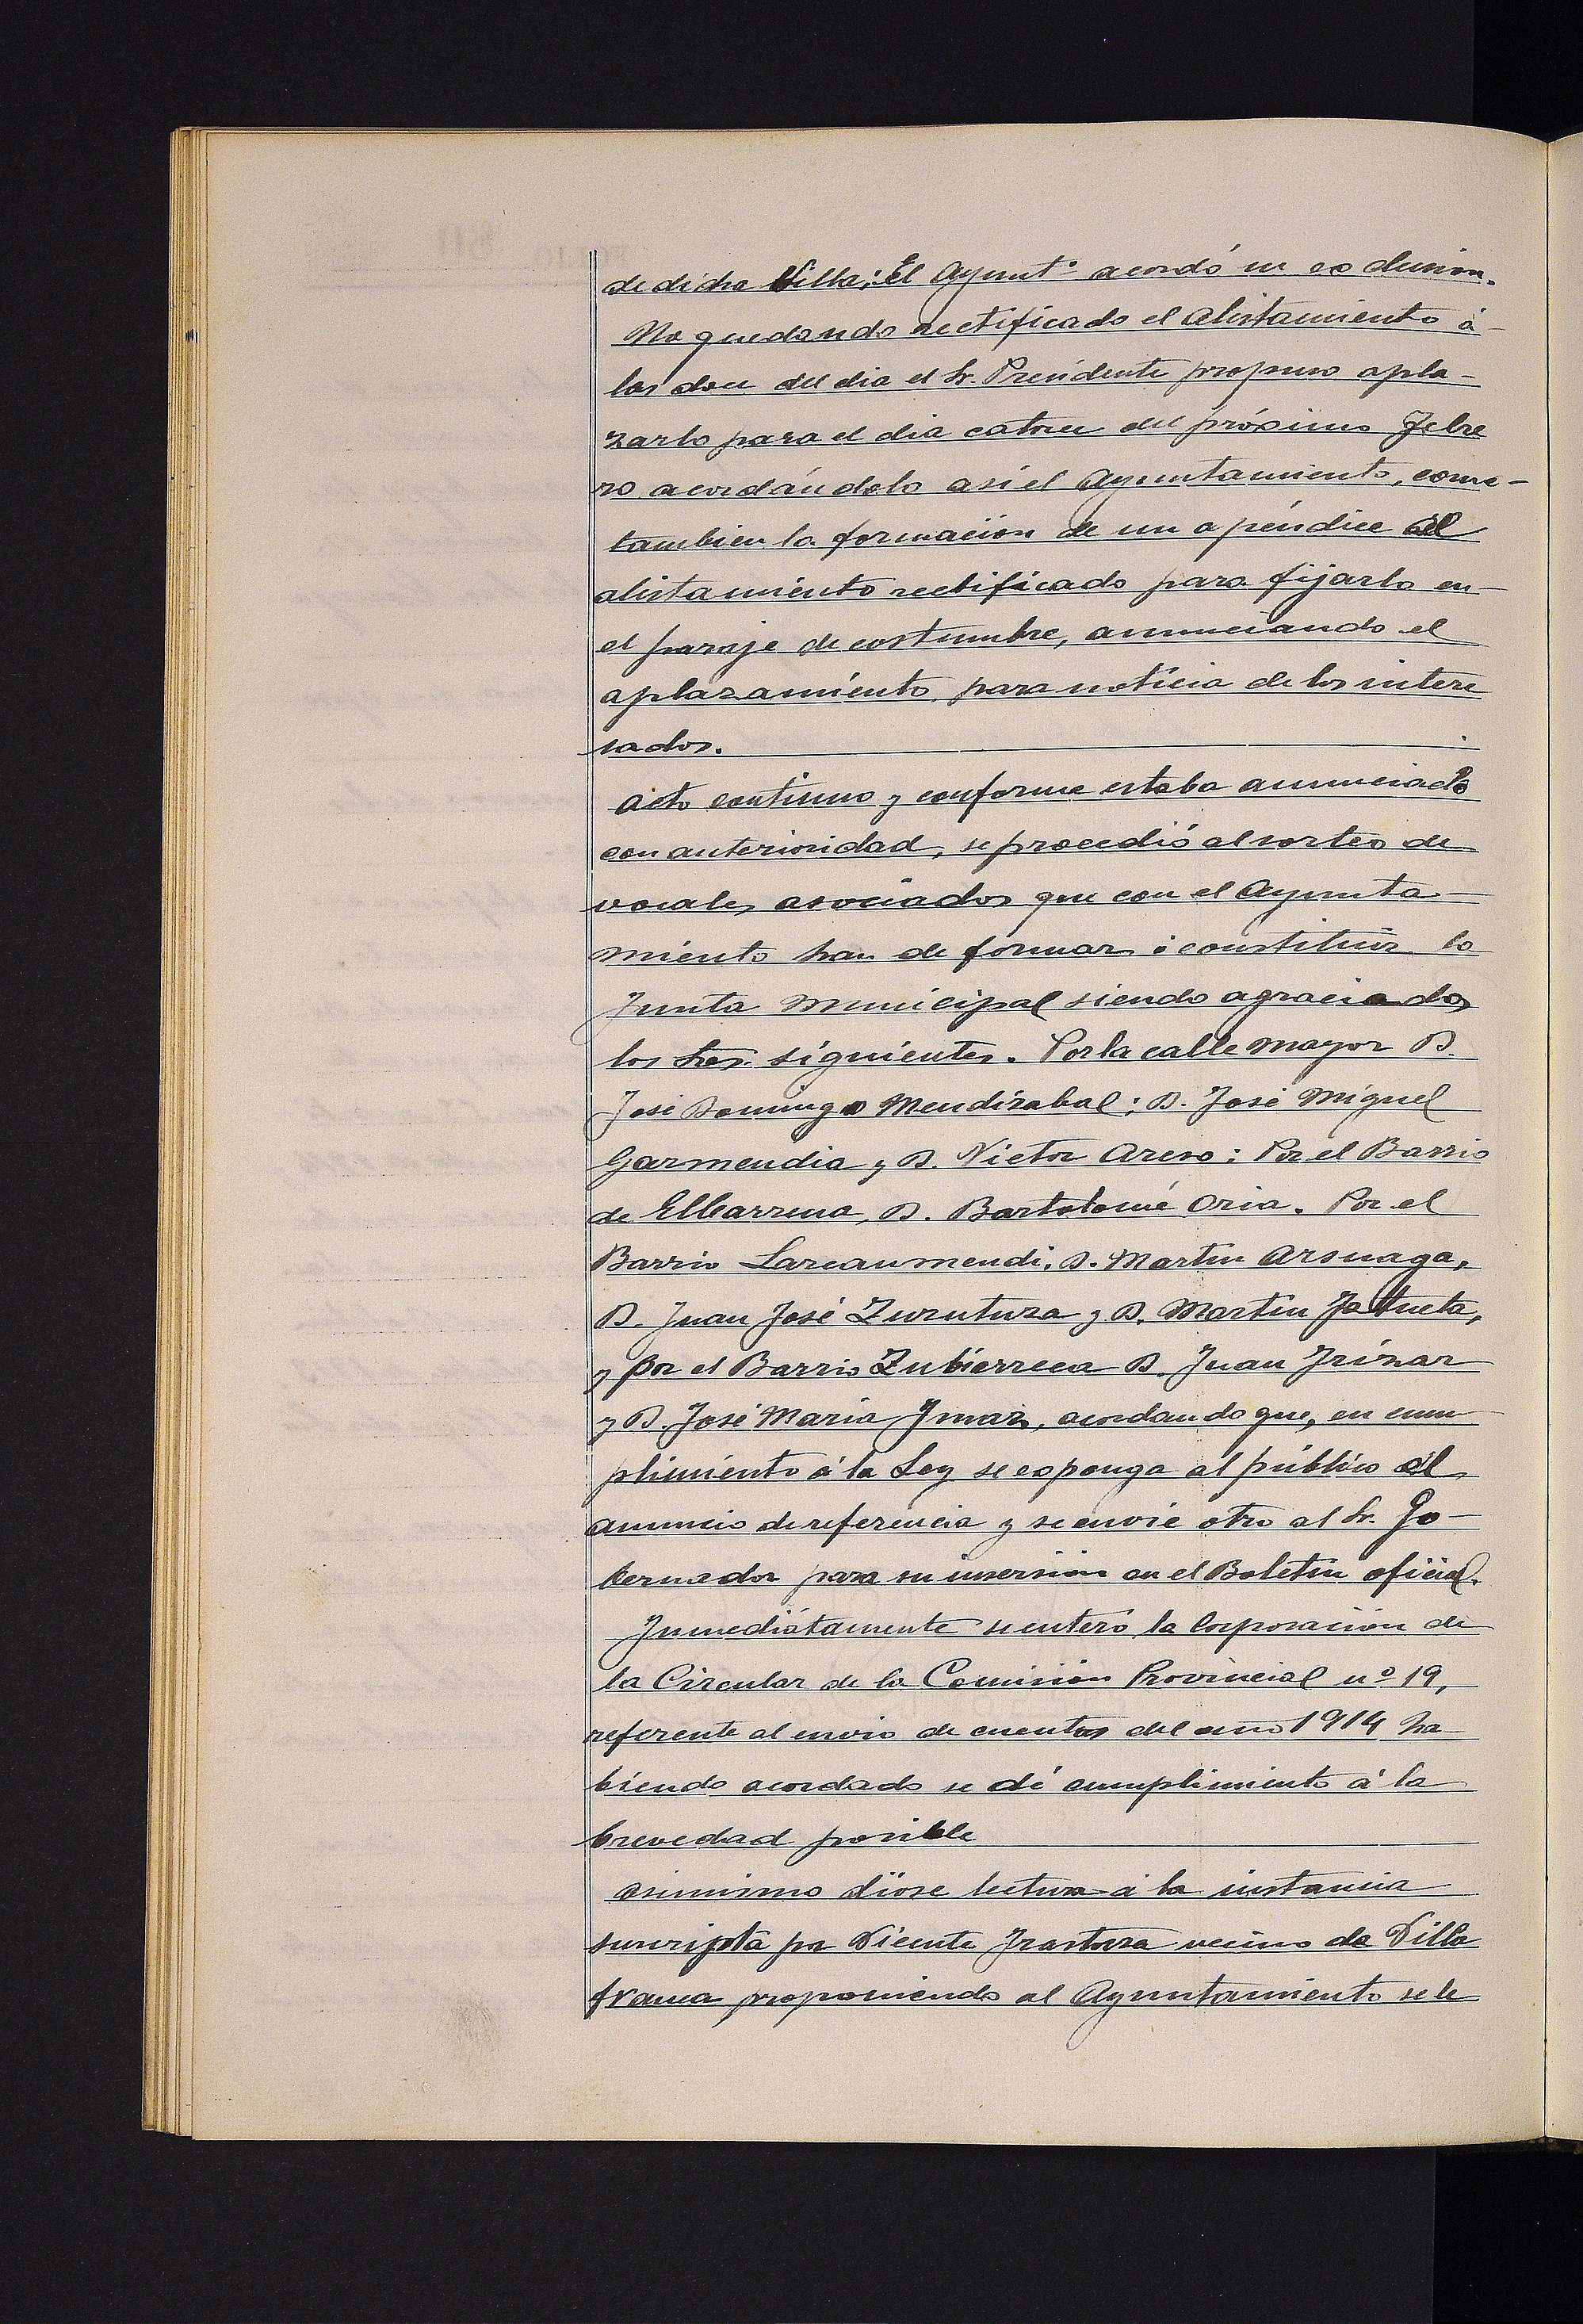 de dicha Villa; El Ayunt.º acordó su exclusion.
No quedando rectificado el alistamiento á
las doce del dia el Sr. Presidente propuso apla-
zarlo para el dia catorce del próximo Febre
ro acordándolo asi el Ayuntamiento, como
tambien la formación de un apéndice al
alistamiento rectificado para fijarlo en
el paraje de costumbre, anunciando el
aplazamiento para noticia de los intere
sados.
Acto continuo y conforme estaba anunciado
con anterioridad, se procedió al sorteo de
vocales asociados que con el Ayunta-
miento han de formar ó constituir la
Junta Municipal siendo agraciados
los Sres. siguientes. Por la calle mayor D.
José Domingo Mendizabal; D. José Miguel
Garmendia y D. Victor Areso: Por el Barrio
de Elbarrena, D. Bartolomé Oria. Por el
Barrio Lazcaumendi, D. Martin Arsuaga,
D. Juan José Zurutuza y D. Martin Jaúueta,
y por el Barrio Zubierreca D. Juan Irizar
y D. José Maria Imaz, acordando que, en cum
plimiento á la Ley se exponga al público el
anuncio de referencia y se envie otro al Sr. Go-
bernador para su inserción en el Boletin oficial.
Inmediatamente se enteró la Corporación de
la Circular de la Comisión Provincial nº 19,
referente al envio de cuentas del año 1914 ha
biendo acordado se dé cumplimiento á la
brevedad posible
Asimismo dióse lectura á la instancia
suscripta por Vicente Irastorza vecino de Villa
franca proponiendo al Ayuntamiento se le